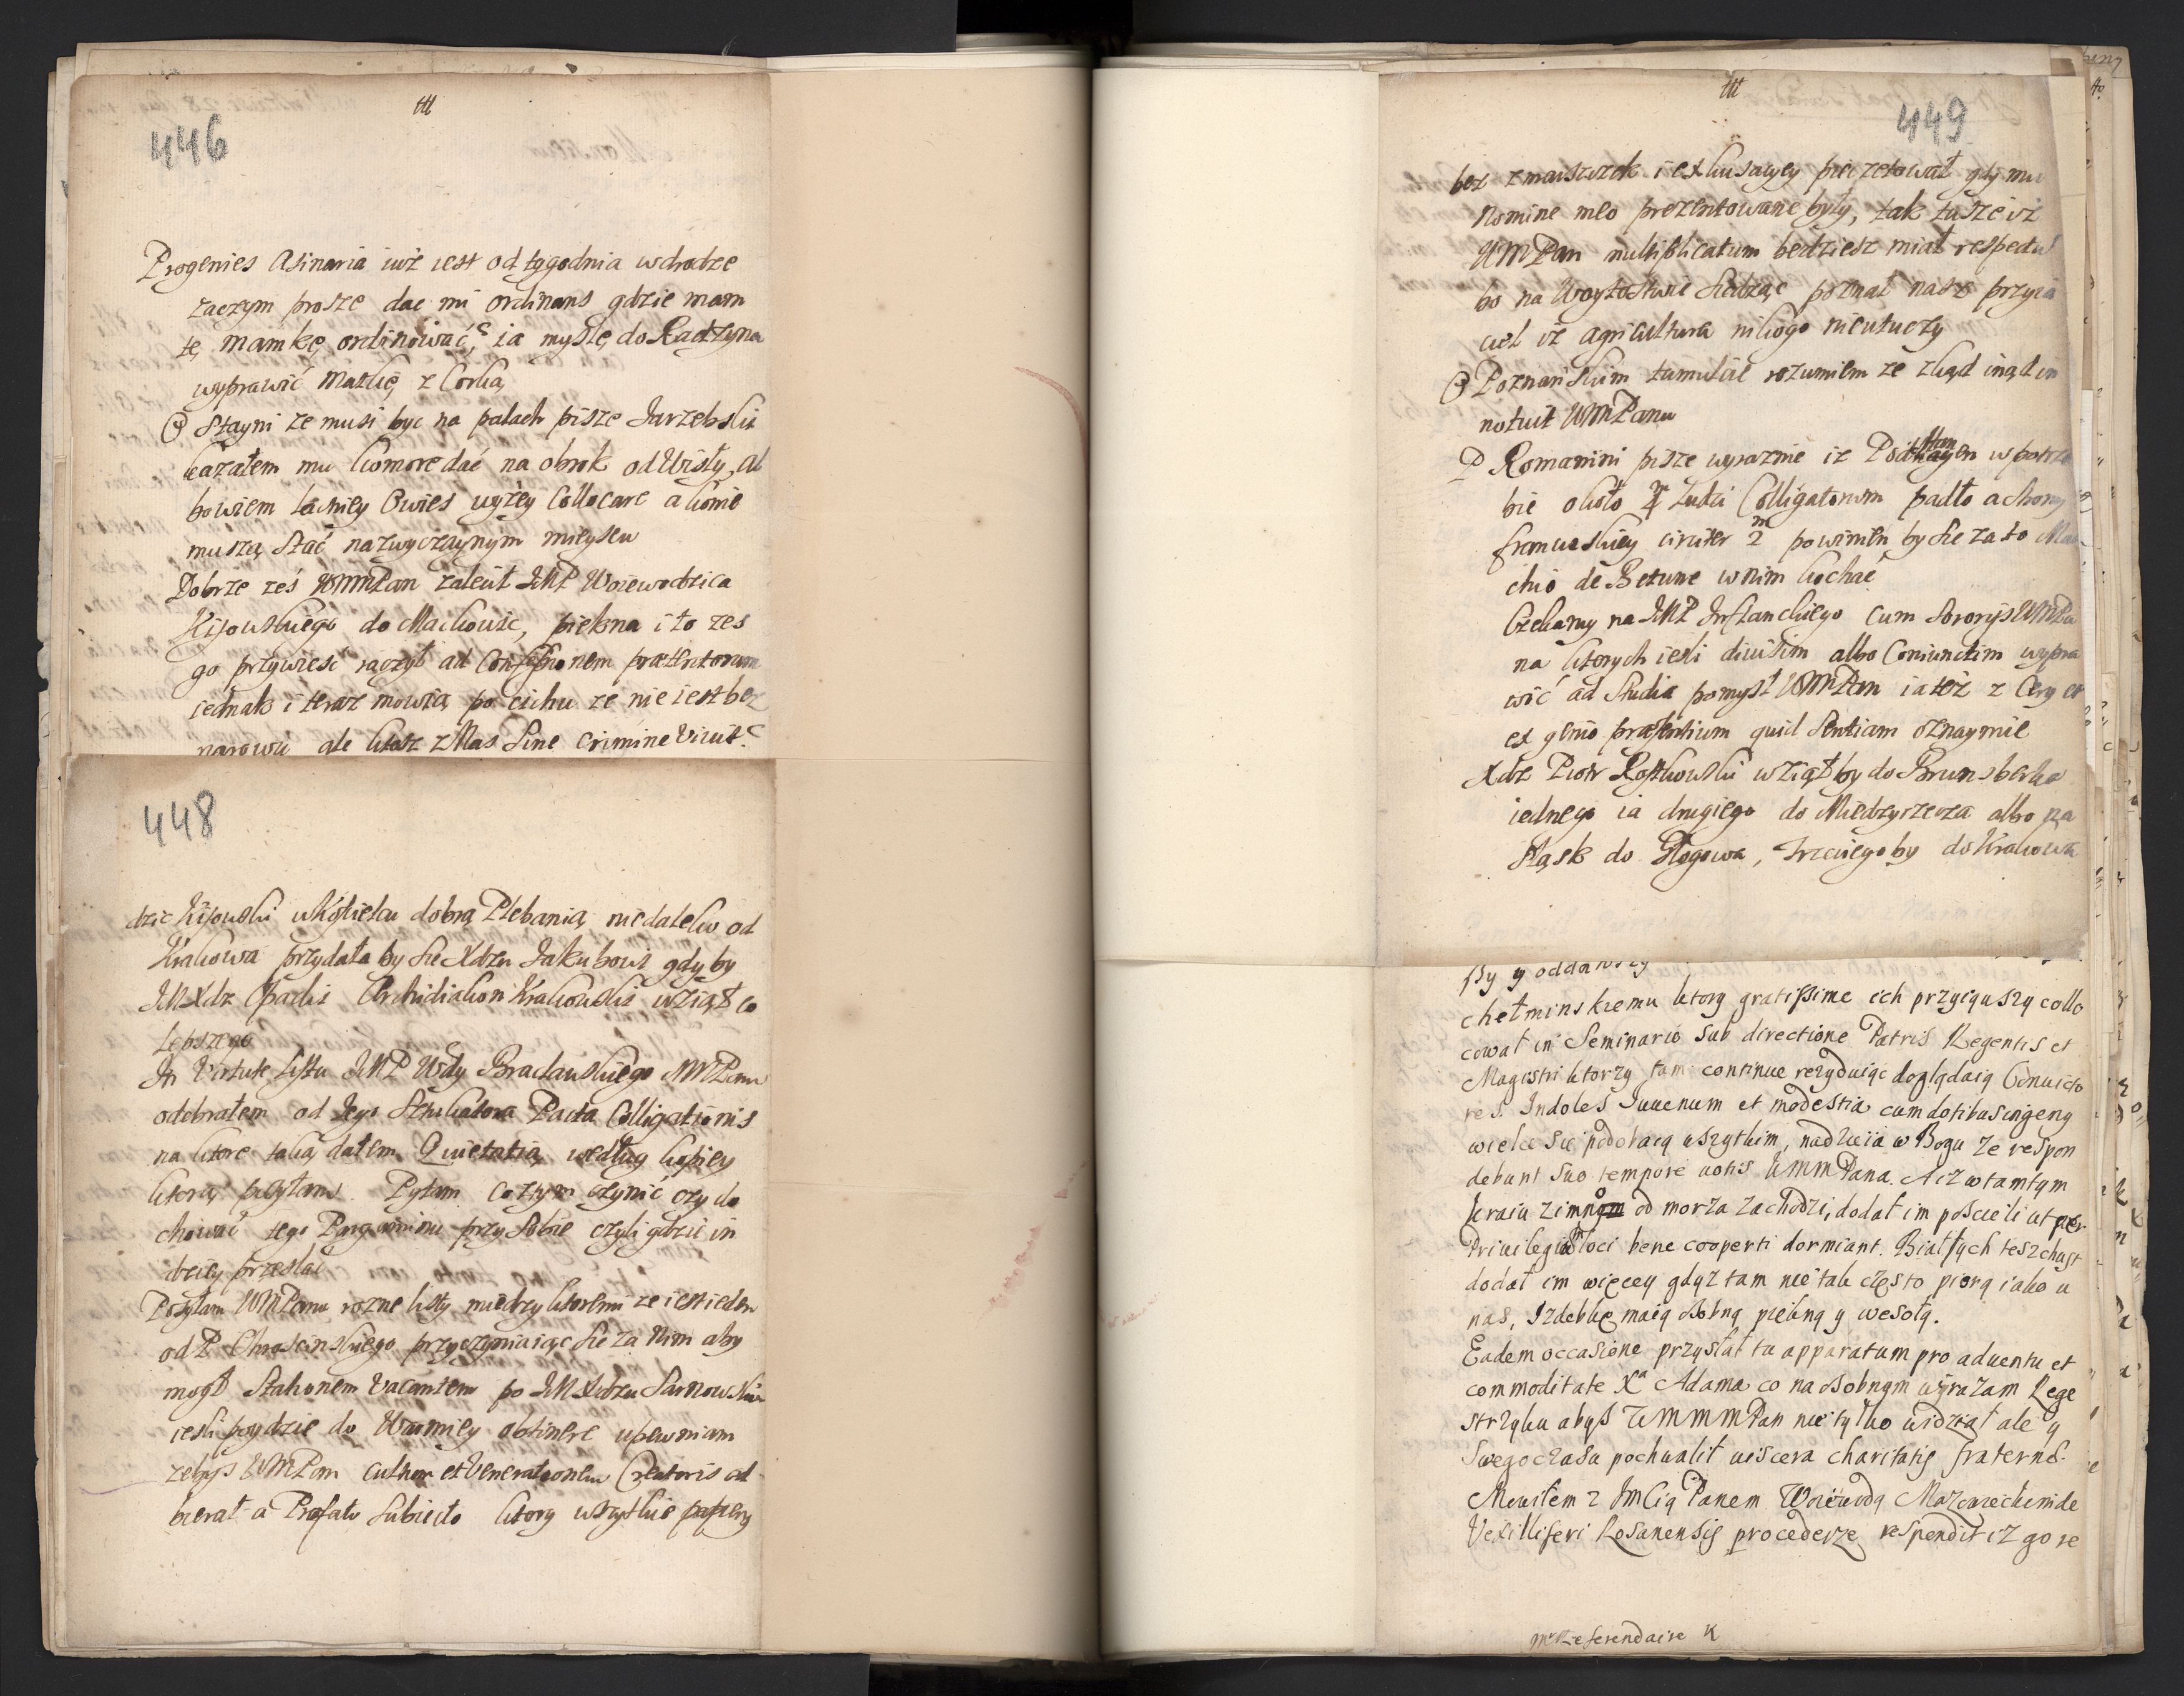 446
Progenies Asinaria iuż iest od tygodnia wdrodze
zaczym prosze dac mi ordinans gdzie mam
tę mamkę ordinować, ia myslę do Radzyna
wyprawić Matkę z Corką
Stayni ze musi byc na palach pisze Jarzebski
kazałem mu komore dać na obrok od Wisły, al
bowiem lacniey Owies wyżey Collocare a konie
muszą stać nazwyczaynym mieyscu
Dobrze zes WMMPan zalecił JMP Woiewodzica
Kijowskiego do Maćkowic, piekna i to zes
go przywiesc raczył ad Confessionem praetentorum
iednak i teraz mowią po cichu ze nie iest bez
narowu ale ktosz z Nas Sine crimine vivit.
448
dzic Kijowski dobrą Plebanią niedaleko od
Krakowa przydała by sie Xdzu Jakubowi gdy by
JMXdz Opacki Archidiakon Krakowski wziął co
Lepszego
In Virtute Listu JMP Wdy Bracławskiego MMPanu
odebrałem od Jego Pacta Colligationis
na ktore taką dałem Quietatią według kopiey
ktorą posyłam. Pytam co ztym czynić czy do
chować tego Pargaminu przy sobie czyli gdzie in
dziey przesłac
Posyłam WMPanu rozne listy między ktoremi ze iest ieden
od P Chroscinskiego przyczyniaiąc sie za Nim aby
mogł Stationem vacantem po JMXdzu Sarnowskim
iesli poydzie do Warmiey obtinere upewniam
zebys WMPan cultum et Venerationem Creatoris od
bierał a Praefato Subiecto ktory wszytkie papiery
449
bez zmarszczek i exkusacyey pieczetował gdy mu
Nomine meo prezentowane były, tak tusze iż
WMPan multiplicatum bedziesz miał respectu
bo na Woytostwie Siedząc poznał nasz przyia
ciel iż agricultura nikogo nieutuczy
Poznanskim tumulcie rozumiem ze zkąd inąd in
notuit WMPanu
P Romanini pisze wyraznie iz w potrze
bie około 4 m Ludzi Colligatorum padło a strony
francuskiey circiter 2 m powinien by sie za to Mar
chio de Betune wnim kochać
Czekamy na JMP Inflanckiego cum Sororijs WMPa
na ktorych iesli divisim albo Coniunctim wypra
wić ad Studia pomysl WMPan ia też z Cery et
ex genio praesentium quid Sentiam oznaymie
Xdz Piotr Rostkowski wziął by do Brunsberka
iednego ia drugiego do Miedzyrzecza albo na
Sląsk do Głogowa, trzeciego by do Krakowa
sły y oddawszy
chełminskiemu ktory gratissime ich przyiąwszy collo
cował in Seminario sub directione Patris Regentis et
Magistri ktorzy tam continue rezyduiąc doglądaią Convicto
res. Indoles Iuuenum et modestia cum dotibus ingeny
wielce sie podobaią wszytkim, nadzieia w Bogu ze respon
debunt suo tempore votis WMMPana. A iz w tamtym
kraiu zimno od morza zachodzi, dodał im poscieli ut per
Priuilegia loci bene cooperti dormiant. Białych tesz chust
dodał im więcey gdyz tam nie tak często piorą iako u
nas, Izdebkę maią osobną piękną y wesołą.
Eadem occasione przysłał tu apparatum pro aduentu et
commoditate Xa Adama co na osobnym wyrazam Rege
strzyku abys WMMMPan nie tylko widział ale y
swego czasu pochwalił viscera charitatis fraternae.
Mowiłem z JmCią Panem Woiewodą Mazowieckim de
Vexilliferi Rosanensis procederze respondit iz go re
Mr Referendaire K